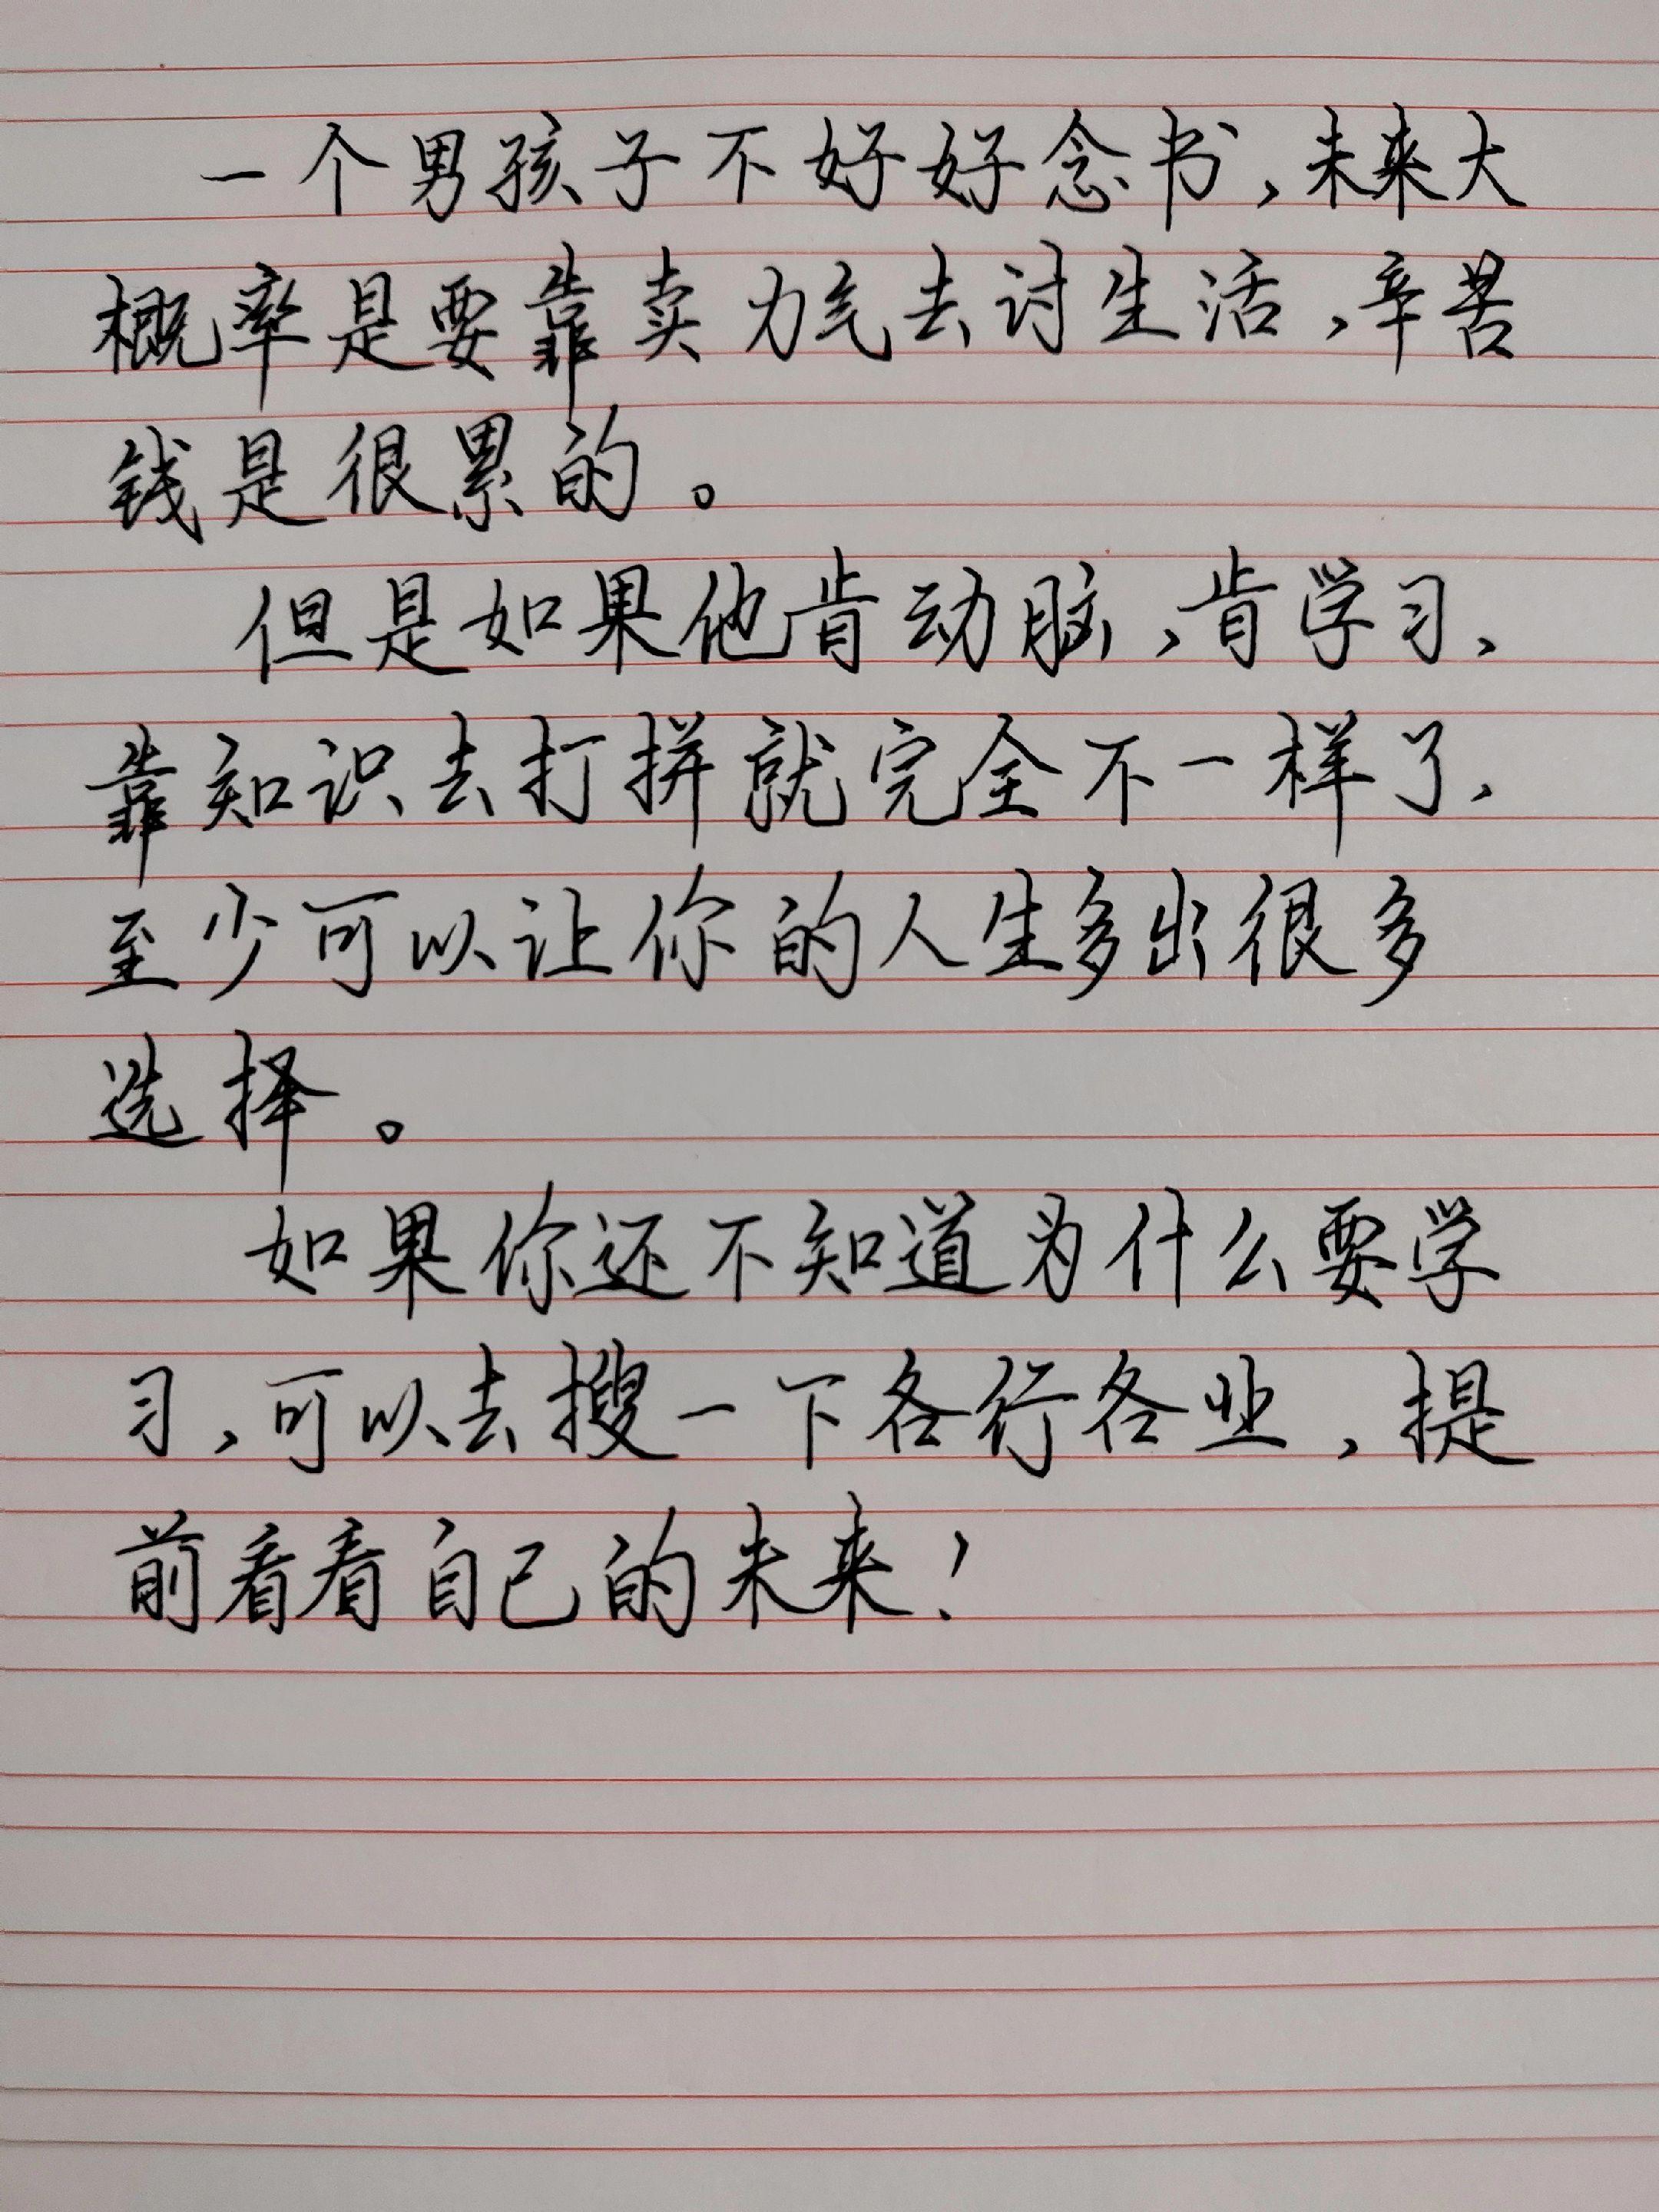 一个男孩子不好好念书,未来大
概率是要靠卖力气去讨生活,辛苦
钱是很累的。
但是如果他肯动脑,肯学习、
靠知识去打拼就完全不一样了、
至少可以让你的人生多出很多
选择。
如果你还不知道为什么要学
习,可以去搜一下各行各业,提
前看看自己的未来!